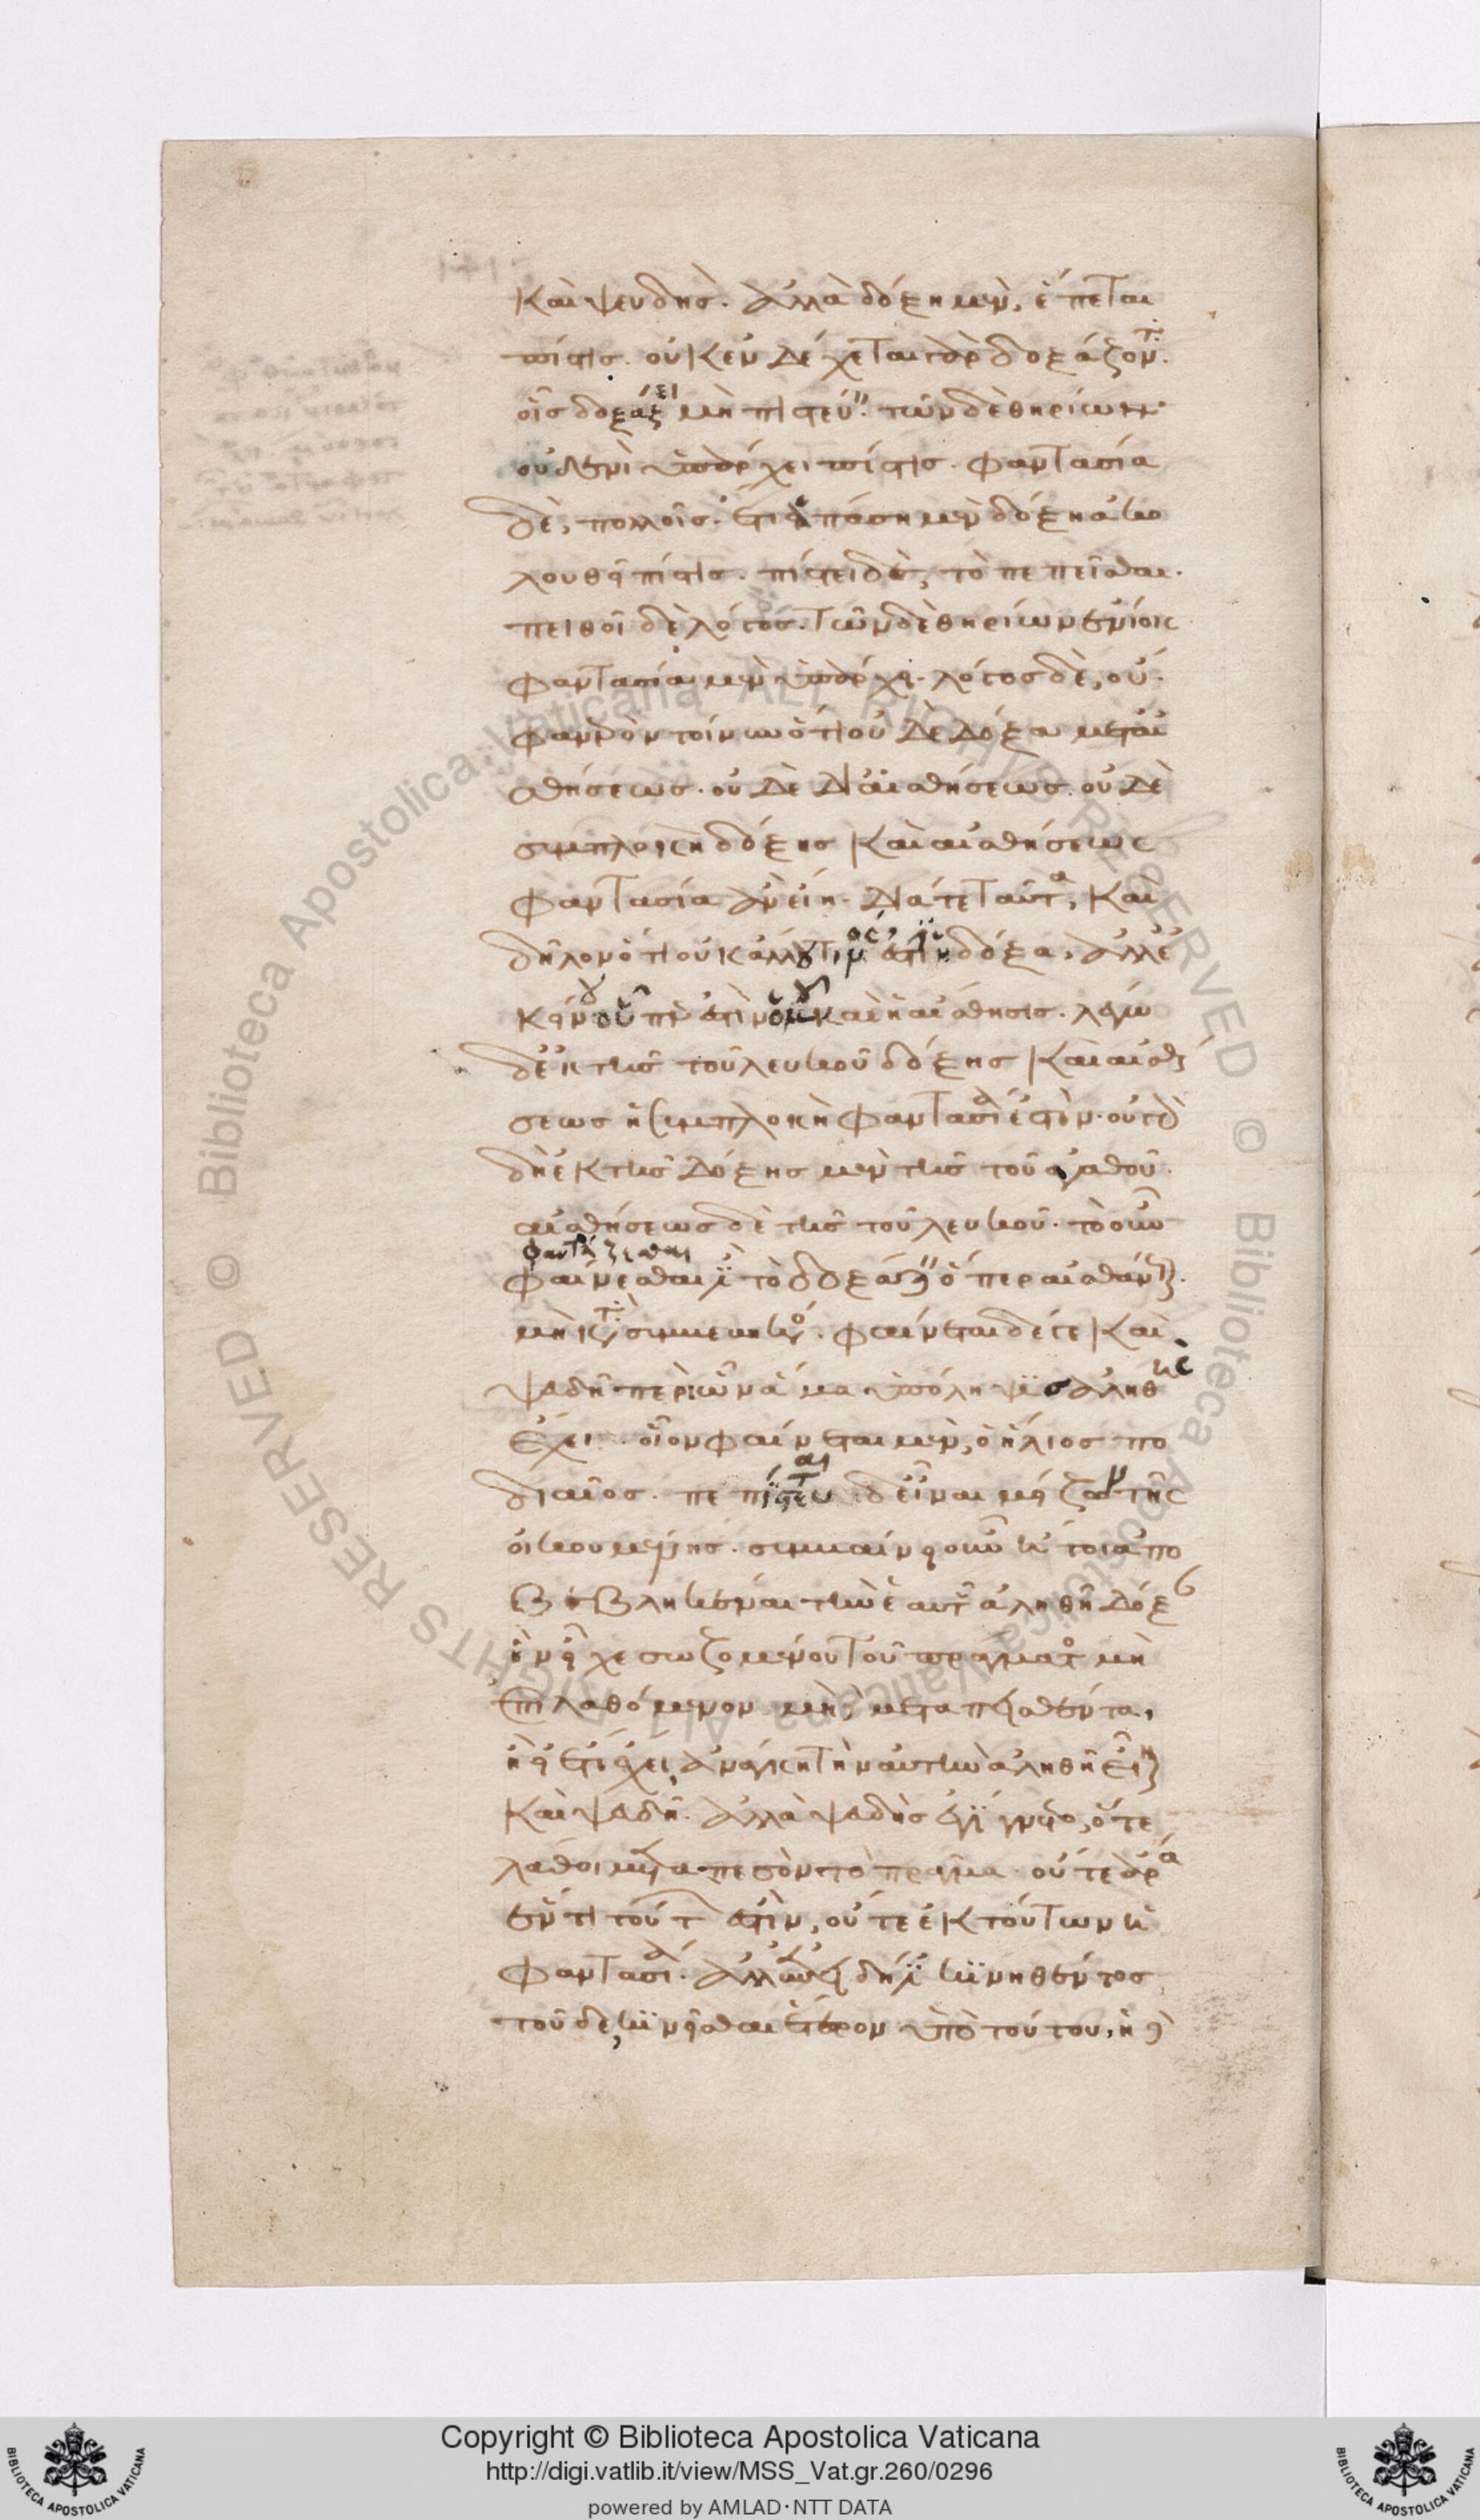 καὶ ψευδής. ἀλλὰ δόξη μὲν, ἕπεται
πίστις. οὐκ ἐνδέχεται γὰρ δοξάζοντ
οἷς δοξάζει μὴ πιστεύ. τῶν δὲ θηρίων
οὐδενὶ ὑπάρχει πίστις. φαντασία
δὲ, πολλοῖς. ἔτι πάση μὲν δόξη ἀκο
λουθεῖ πίστις. πίστει δὲ, τὸ πεπεῖσθαι.
πειθοῖ δὲ λόγος. τῶν δὲ θηρίων ἐνίοις
φαντασία μὲν ὑπάρχει. λόγος δὲ, οὔ.
φανερὸν τοίνυν ὅτι οὐδὲ δόξα μετ αἰ
σθήσεως. οὐδὲ δι αἰσθήσεως. οὐδὲ
συμπλοκὴ δόξης καὶ αἰσθήσεως
φαντασία ἂν εἴη. διά τε ταῦτα, καὶ
δῆλον ὅτι οὐκ ἄλλου τινός ἐστιν ἡ δόξα, ἀλλ ἐ
κείνου οὗπέρ ἐστιν καὶ ἡ αἴσθησις. λέγω
δ ἐκ τῆς τοῦ λευκοῦ δόξης καὶ αἰσθή
σεως ἡ συμπλοκὴ φαντασία ἐστὶν. οὐ γὰρ
δὴ ἐκ τῆς δόξης μὲν τῆς τοῦ ἀγαθοῦ.
αἰσθήσεως δὲ τῆς τοῦ λευκοῦ. τὸ οὖν
φαντάζεσθαι
φαίνεσθαι ἐστὶ τὸ δοξάζειν ὅπερ αἰσθάνεται.
μὴ κατὰ συμβεβηκός. φαίνεται δέ γε καὶ
ψευδῆ περὶ ὧν ἅμα ὑπόληψιν ἀληθῆ
ἔχει. οἷον φαίνεται μὲν, ὁ ἥλιος πο
διαῖος. πεπίστευται δ εἶναι μείζων τῆς
οἰκουμένης. συμβαίνει οὖν ἤτοι ἀπο
βεβληκέναι τὴν ἑαυτοῦ ἀληθῆ δόξαν
ἣν εἶχε σωζομένου τοῦ πράγματος μὴ
ἐπιλαθόμενον μὴδὲ μεταπεισθέντα,
ἢ εἰ ἔτι ἔχει, ἀνάγκη τὴν αὐτὴν ἀληθῆ εἶναι
καὶ ψευδῆ. ἀλλὰ ψευδὴς ἐγένετο, ὅτε
λάθοι μεταπεσὸν τὸ πρᾶγμα. οὔτε ἄρα
ἕν τι τούτων ἐστὶν, οὔτε ἐκ τούτων ἡ
φαντασία. ἀλλ ἐπειδή ἐστι κινηθέντος
τοῦδε, κινεῖσθαι ἕτερον ὑπὸ τούτου, ἡ δὲ
Copyright © Biblioteca Apostolica Vaticana
http://digi.vatlib.it/view/MSS_Vat.gr.260/0296
powered by AMLAD·NTT DATA